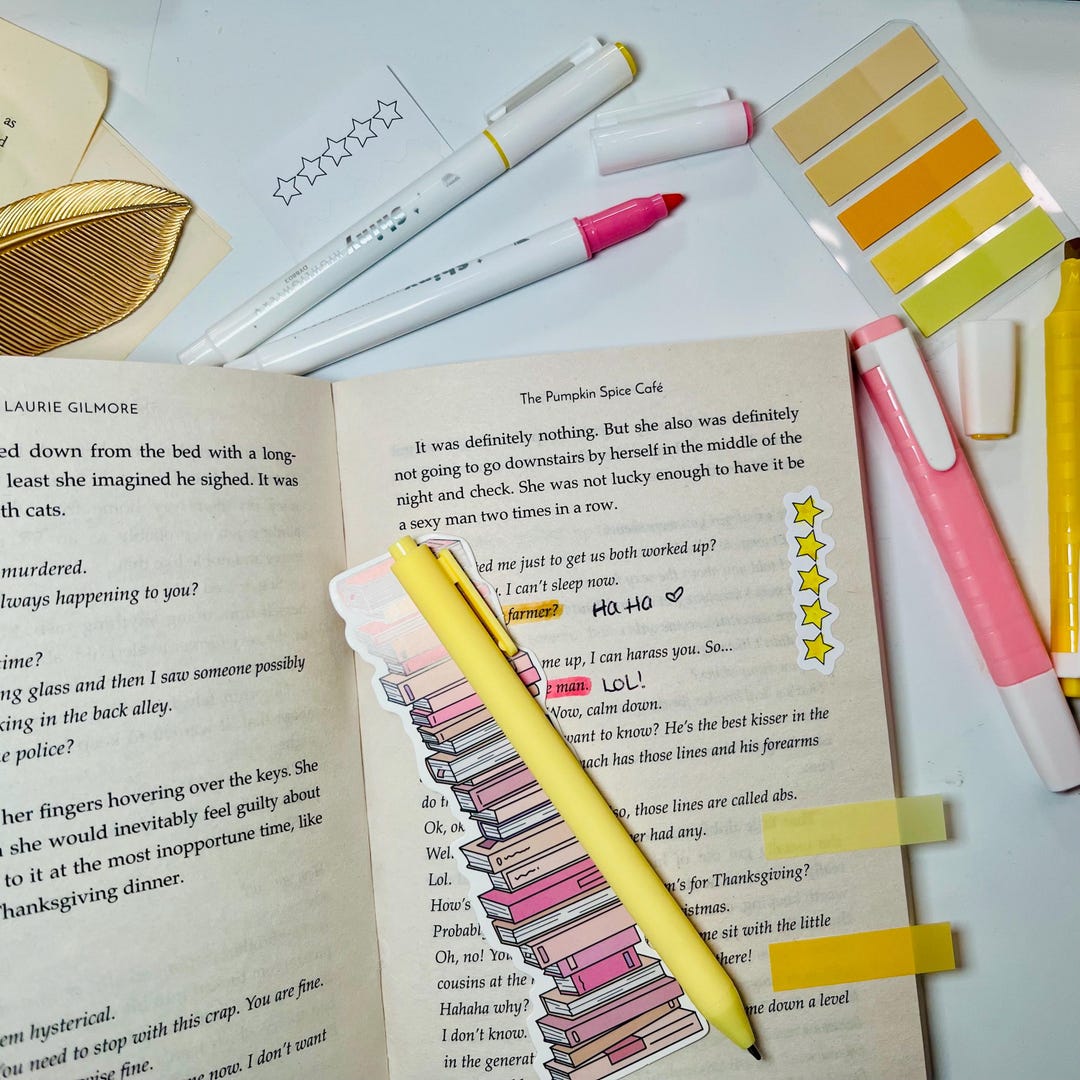 as
LAURIE GILMORE
ed down from the bed with a long-
least she imagined he sighed. It was
th cats.
murdered.
lways happening to you?
time?
ng glass and then I saw someone possibly
king in the back alley.
e police?
her fingers hovering over the keys. She
she would inevitably feel guilty about
to it at the most inopportune time, like
Thanksgiving dinner.
em hysterical.
You need to stop with this crap. You are fine.
wise fine.
me now. I don't want
The Pumpkin Spice Café
It was definitely nothing. But she also was definitely
not going to go downstairs by herself in the middle of the
night and check. She was not lucky enough to have it be
a sexy man two times in a row.
ed me just to get us both worked up?
I can't sleep now.
farmer? Ha Ha ♡
me up, I can harass you. So...
e man. LOL!
Wow, calm down.
want to know? He's the best kisser in the
mach has those lines and his forearms
do th
so, those lines are called abs.
Ok, ok
er had any.
Wel.
Lol.
m's for Thanksgiving?
How's
istmas.
Probabl
me sit with the little
Oh, no! You
there!
cousins at the
Hahaha why?
me down a level
I don't know.
in the generat
shiny